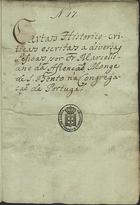 N 17
Cartas Historico-cri
ticas escritas a diversas
Pessoas por Fr. Marceli
ano da Ascençaõ Monge
de S. Bento na Congrega
çaõ de Portugal